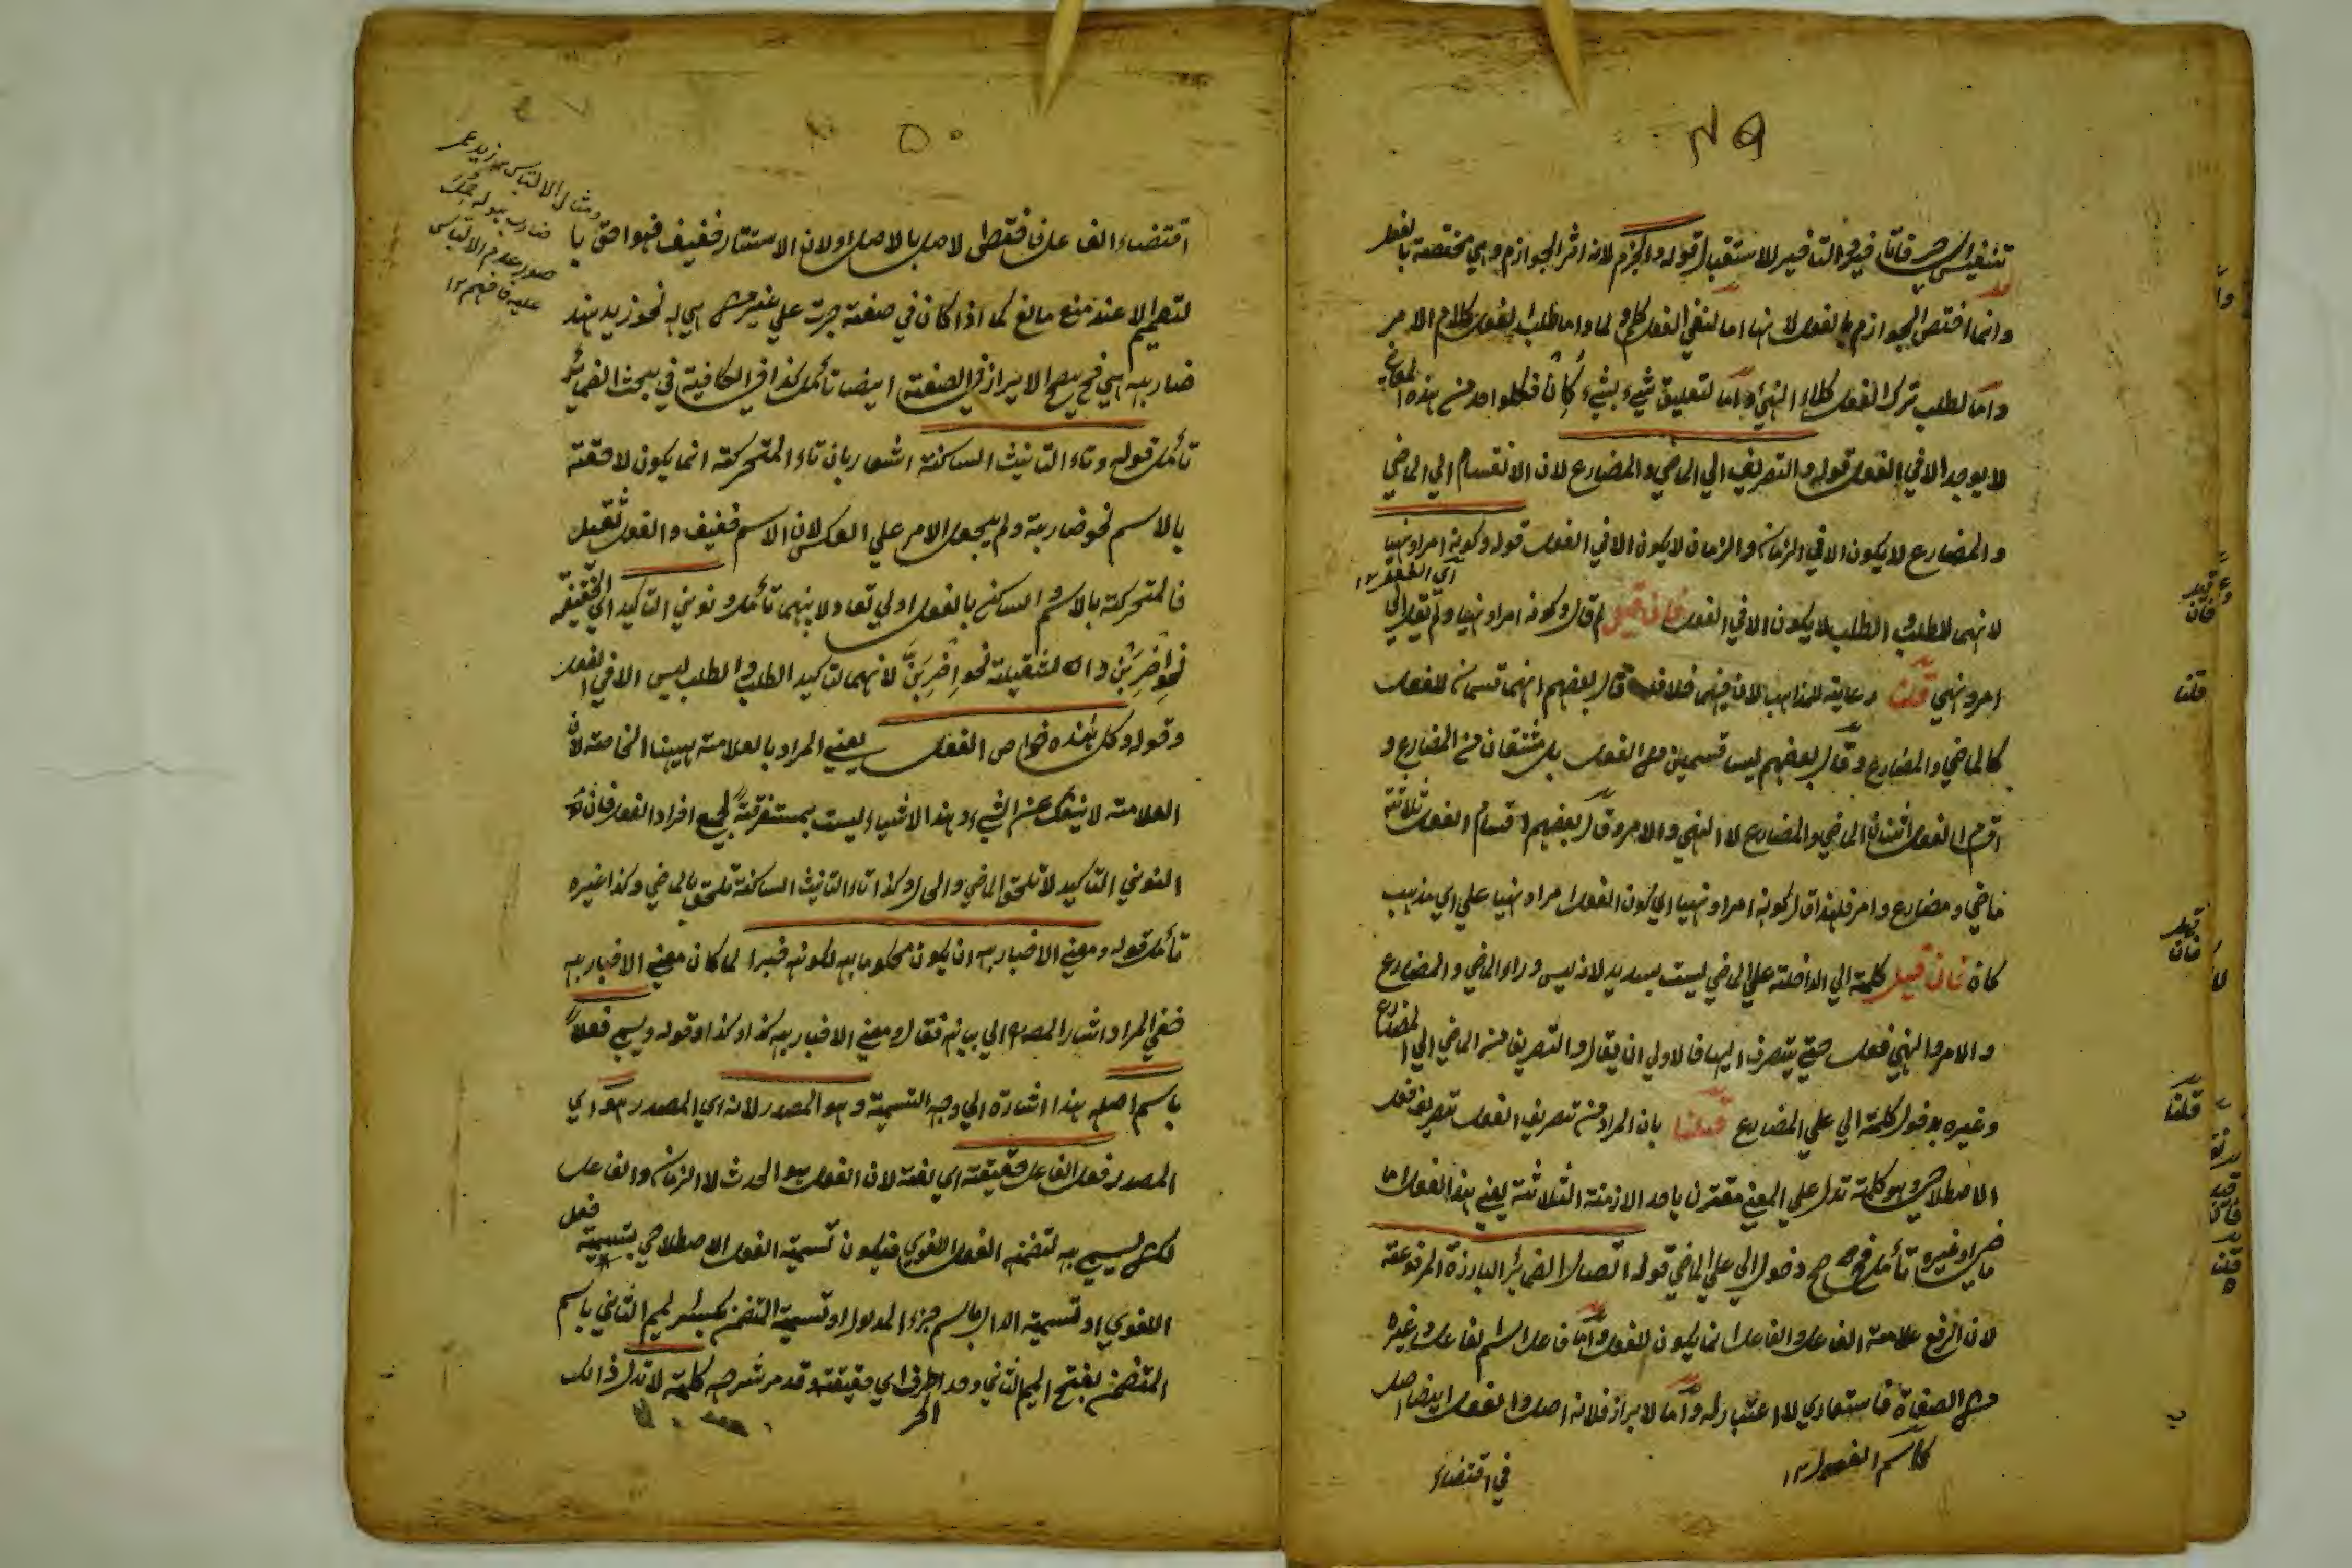 ٤٩
تنفيس فاما فيه التاخير للاستقبال قوله والجزم لانه اثر الجوازم وهي مختصة بالفعل
وانما اختص الجوازم بالفعل لانها اما لنفي الفعل كلم ولما واما طلب الفعل كلام الامر
واما لطلب ترك الفعل كلاء النهي واما لتعليق شيء بشيء كان فكل واحد من هذه المعاني
لا يوجد الا في الفعل قوله والتصريف الي الماضي والمضارع لان الانقسام الي الماضي
والمضارع لا يكون الا في الزمان والزمان لا يكون الا في الفعل قوله وكونه امرا ونهيا
لانهما للطلب والطلب لا يكون الا في الفعل فان قيل لم قال وكونه امرا ونهيا ولم يقل الي
امر ونهي قلنا رعاية للمذاهب لان فيهما خلافا قال بعضهم انهما قسمان للفعل
كالماضي والمضارع وقال بعضهم ليسا قسمين من الفعل بل مشتقان من المضارع و
اقسام الفعل اثنان الماضي والمضارع لا النهي والامر وقال بعضهم اقسام الفعل ثلاثة
ماضي ومضارع وامر فلهذا قال كونه امرا ونهيا اي كون الفعل امرا ونهيا علي اي مذهب
كان فان قيل كلمة الي الداخلة علي الماضي ليست بسديد لانه ليس وراء الماضي والمضارع
والامر والنهي فعل حتي يتصرف اليها فالاولي ان يقال والتصريف من الماضي الي المضارع
وغيره بدخول كلمة الي علي المضارع قلنا بان المراد من تصريف الفعل تصريف فعل
الاصطلاحي هو كلمة تدل علي المعني مقترن باحد الازمنة الثلاثة يعني هذا الفعل اما
ماضي او غيره تأمل فح صح دخول الي علي الماضي قوله اتصال الضمائر البارزة المرفوعة
لان الرفع علامة الفاعل والفاعل انما يكون للفعل واما فاعل اسم الفاعل وغيره
من الصفاة فاستعاري لا اعتبار له واما الابراز فلانه اصل والفعل ايضا اصل
كاسم المفعول ١٢
في اقتضاء
فان
قلنا
فان
قلنا
٥٠
ومثال الالتباس نحو زيد عمر
ضاربه
صورت عدم الالتباس
عليه فافهم ١٢
اقتضاء الفاعل فاعطي الاصل بالاصل ولان الاستتار خفيف فهو احق با
لتعميم الا عند منع مانع كما اذا كان في صفة جرت علي غير من هي له نحو زيد هند
ضاربه هي فح يصح الابراز في الصفة ايضا تأمل كذا في الكافية في بحث الضمائر
تأمل قوله وتاء التانيث الساكنة اشعار بان تاء المتحركة انما يكون لاحقة
بالاسم نحو ضاربة ولم يجعل الامر علي العكس لان الاسم خفيف والفعل ثقيل
فالمتحركة بالاسم والساكن بالفعل اولي تعادلا بينهما تأمل ونوني التاكيد اي الخفيفة
نحو اضربن والثقيلة نحو اضربن لانهما لتاكيد الطلب والطلب ليس الا في الفعل
وقوله وكل هذه خواص الفعل يعني المراد بالعلامة ههنا الخاصة لان
العلامة لا ينفك عن الشيء وهذا الاشياء ليست بمستغرقة لجميع افراد الفعل فان
النوني التاكيد لا تلحق الماضي والحال وكذا تاء التانيث الساكنة تلحق بالماضي وكذا غيره
تأمل قوله ومعني الاخبار به ان يكون محكوما به لكونه خبرا لما كان معني الاخبار به
خفي المراد اشار المصنف الي بيانه فقال ومعني الاخبار به كذا وكذا وقوله ويسمي فعلا
باسم اصله هذا اشارة الي وجه التسمية وهو المصدر لانه اي المصدر هو اي
المصدر فعل الفاعل حقيقة اي لغة لان الفعل هو الحدث لا الزمان والفاعل
لكن يسمي به لتضمنه الفعل اللغوي فيكون تسمية الفعل الاصطلاحي بتسمية فعل
اللغوي او تسمية الدال باسم جزء المدلول او تسمية المتضمن بكسر الميم الثاني باسم
المتضمن بفتح الميم الثاني وحد الحرف اي حقيقته وقد مر شرحه كلمة لا تدل ذالك